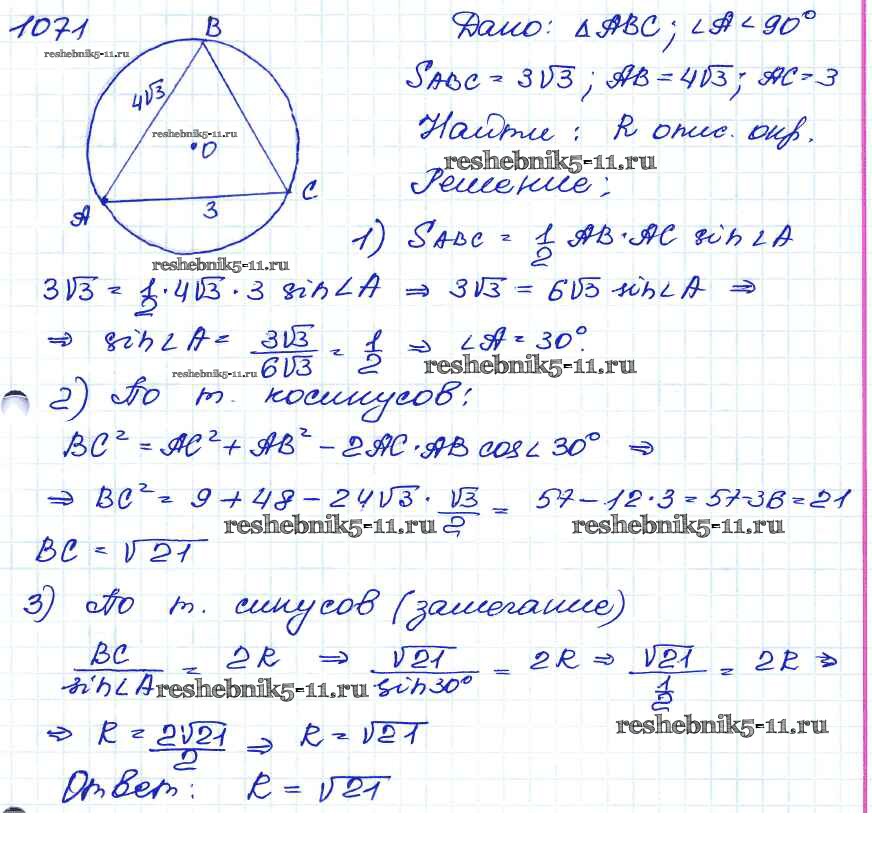 1071
reshebnik5-11.ru
B
4√3
reshebnik5-11.ru
O
A
3
C
reshebnik5-11.ru
Дано: △ ABC; ∠A < 90°
S ABC = 3√3; AB = 4√3; AC = 3
Найти: R опис. окр.
reshebnik5-11.ru
Решение;
1) S ABC = 1/2 AB·AC sin∠A
3√3 = 1/2·4√3·3 sin∠A ⇒ 3√3 = 6√3 sin∠A ⇒
⇒ sin∠A = 3√3/6√3 = 1/2 ⇒ ∠A = 30°.
reshebnik5-11.ru reshebnik5-11.ru
2) По т. косинусов:
BC² = AC² + AB² - 2AC·AB cos∠30° ⇒
⇒ BC² = 9 + 48 - 24√3·√3/2 = 57 - 12·3 = 57-36 = 21
reshebnik5-11.ru reshebnik5-11.ru
BC = √21
3) По т. синусов (замечание)
BC/sin∠A = 2R ⇒ √21/sin30° = 2R ⇒ √21/1/2 = 2R ⇒
reshebnik5-11.ru
reshebnik5-11.ru
⇒ R = 2√21/2 ⇒ R = √21
Ответ: R = √21